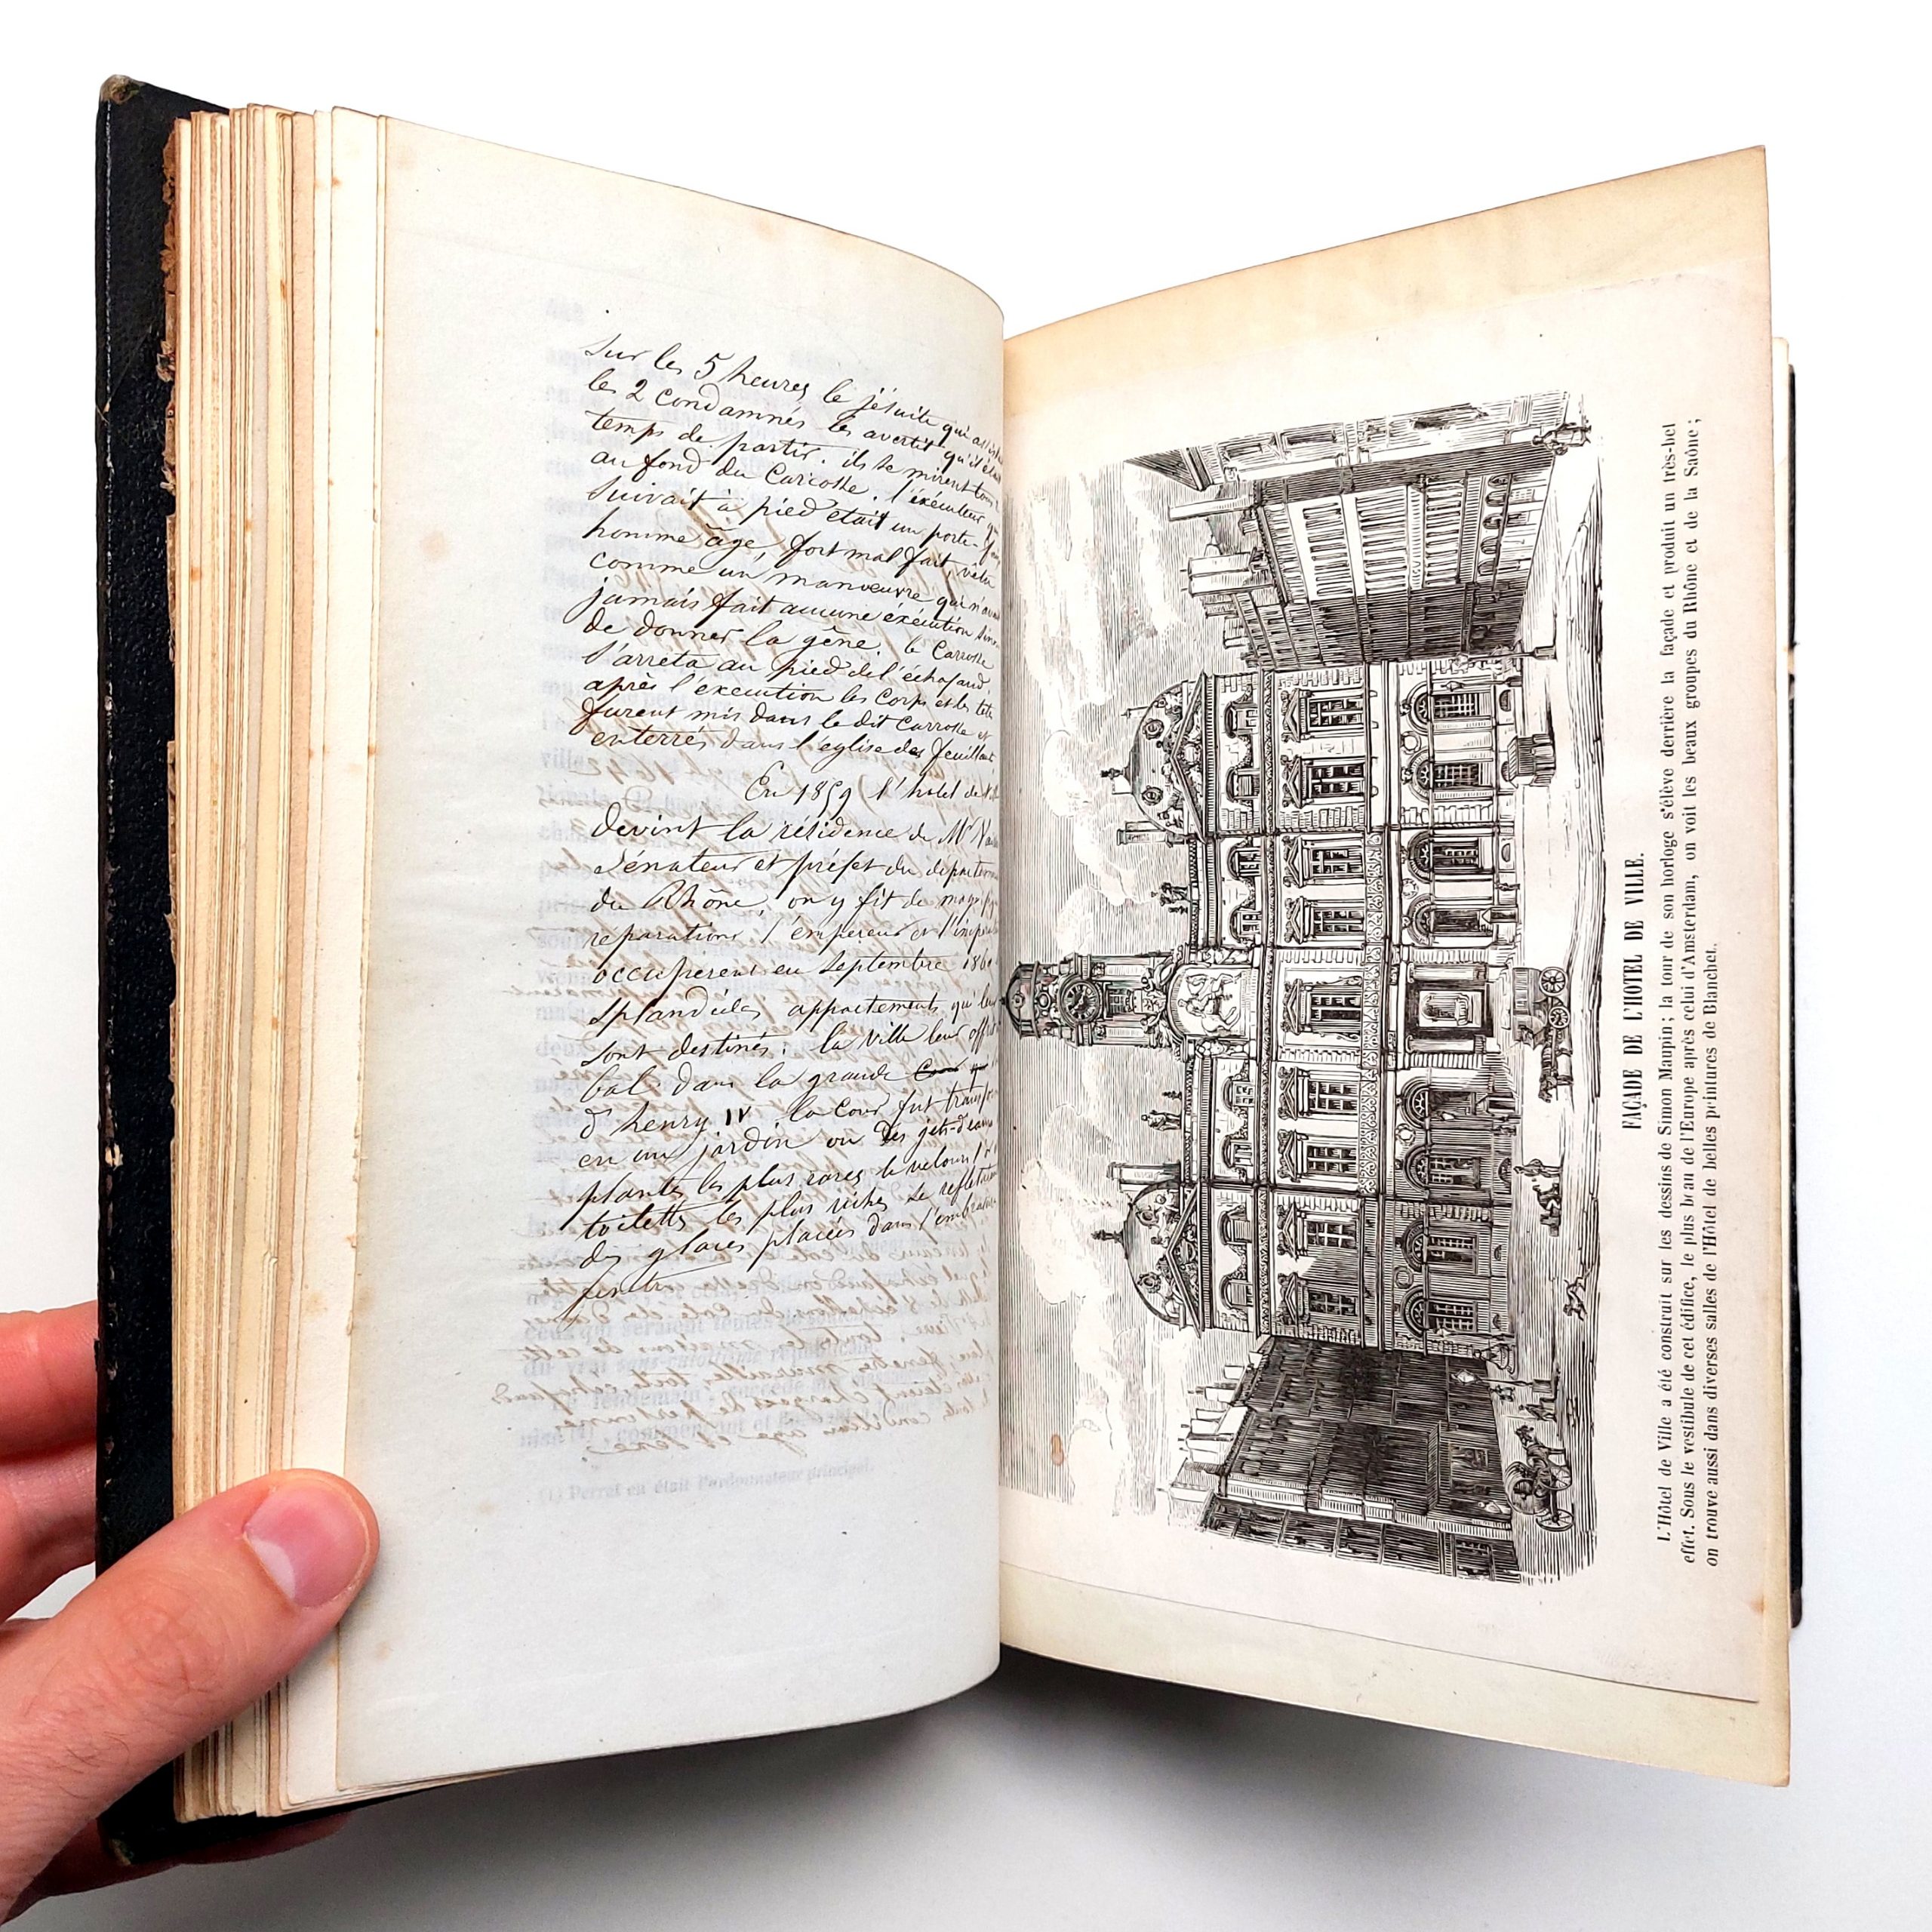 Sur les 5 heures le jésuite qui
les 2 condamnés les avertit qu'il
temps de partir. ils se mirent tous
au fond du Carrosse. l'exécuteur qui
suivait à pied était un porte-faix
homme âgé, fort mal fait, vêtu
comme un manœuvre qui n'avait
jamais fait aucune éxécution sinon
de donner la gêne. le Carrosse
s'arrêta au pied de l'échafaud.
après l'execution les corps et les têtes
furent mis dans le dit Carrosse et
enterrés dans l'eglise des feuillants
En 1859 l'hotel de
devint la résidence de Mr
Sénateur et préfet du
du Rhône, on y fit de
reparations, l'empereur et
occupèrent en Septembre 1860
appartements qui leur
sont destinés. la Ville leur
bal dans la grande
d'henry IV la Cour fut
en un jardin ou des jets-d'eaux
plantes les plus rares le velours
toilettes les plus riches se
des glaces placées dans
FAÇADE DE L'HOTEL DE VILLE.
L'Hôtel de Ville a été construit sur les dessins de Simon Maupin; la tour de son horloge s'élève derrière la façade et produit un très-bel
effet. Sous le vestibule de cet édifice, le plus beau de l'Europe après celui d'Amsterdam, on voit les beaux groupes du Rhône et de la Saône;
on trouve aussi dans diverses salles de l'Hôtel de belles peintures de Blanchet.